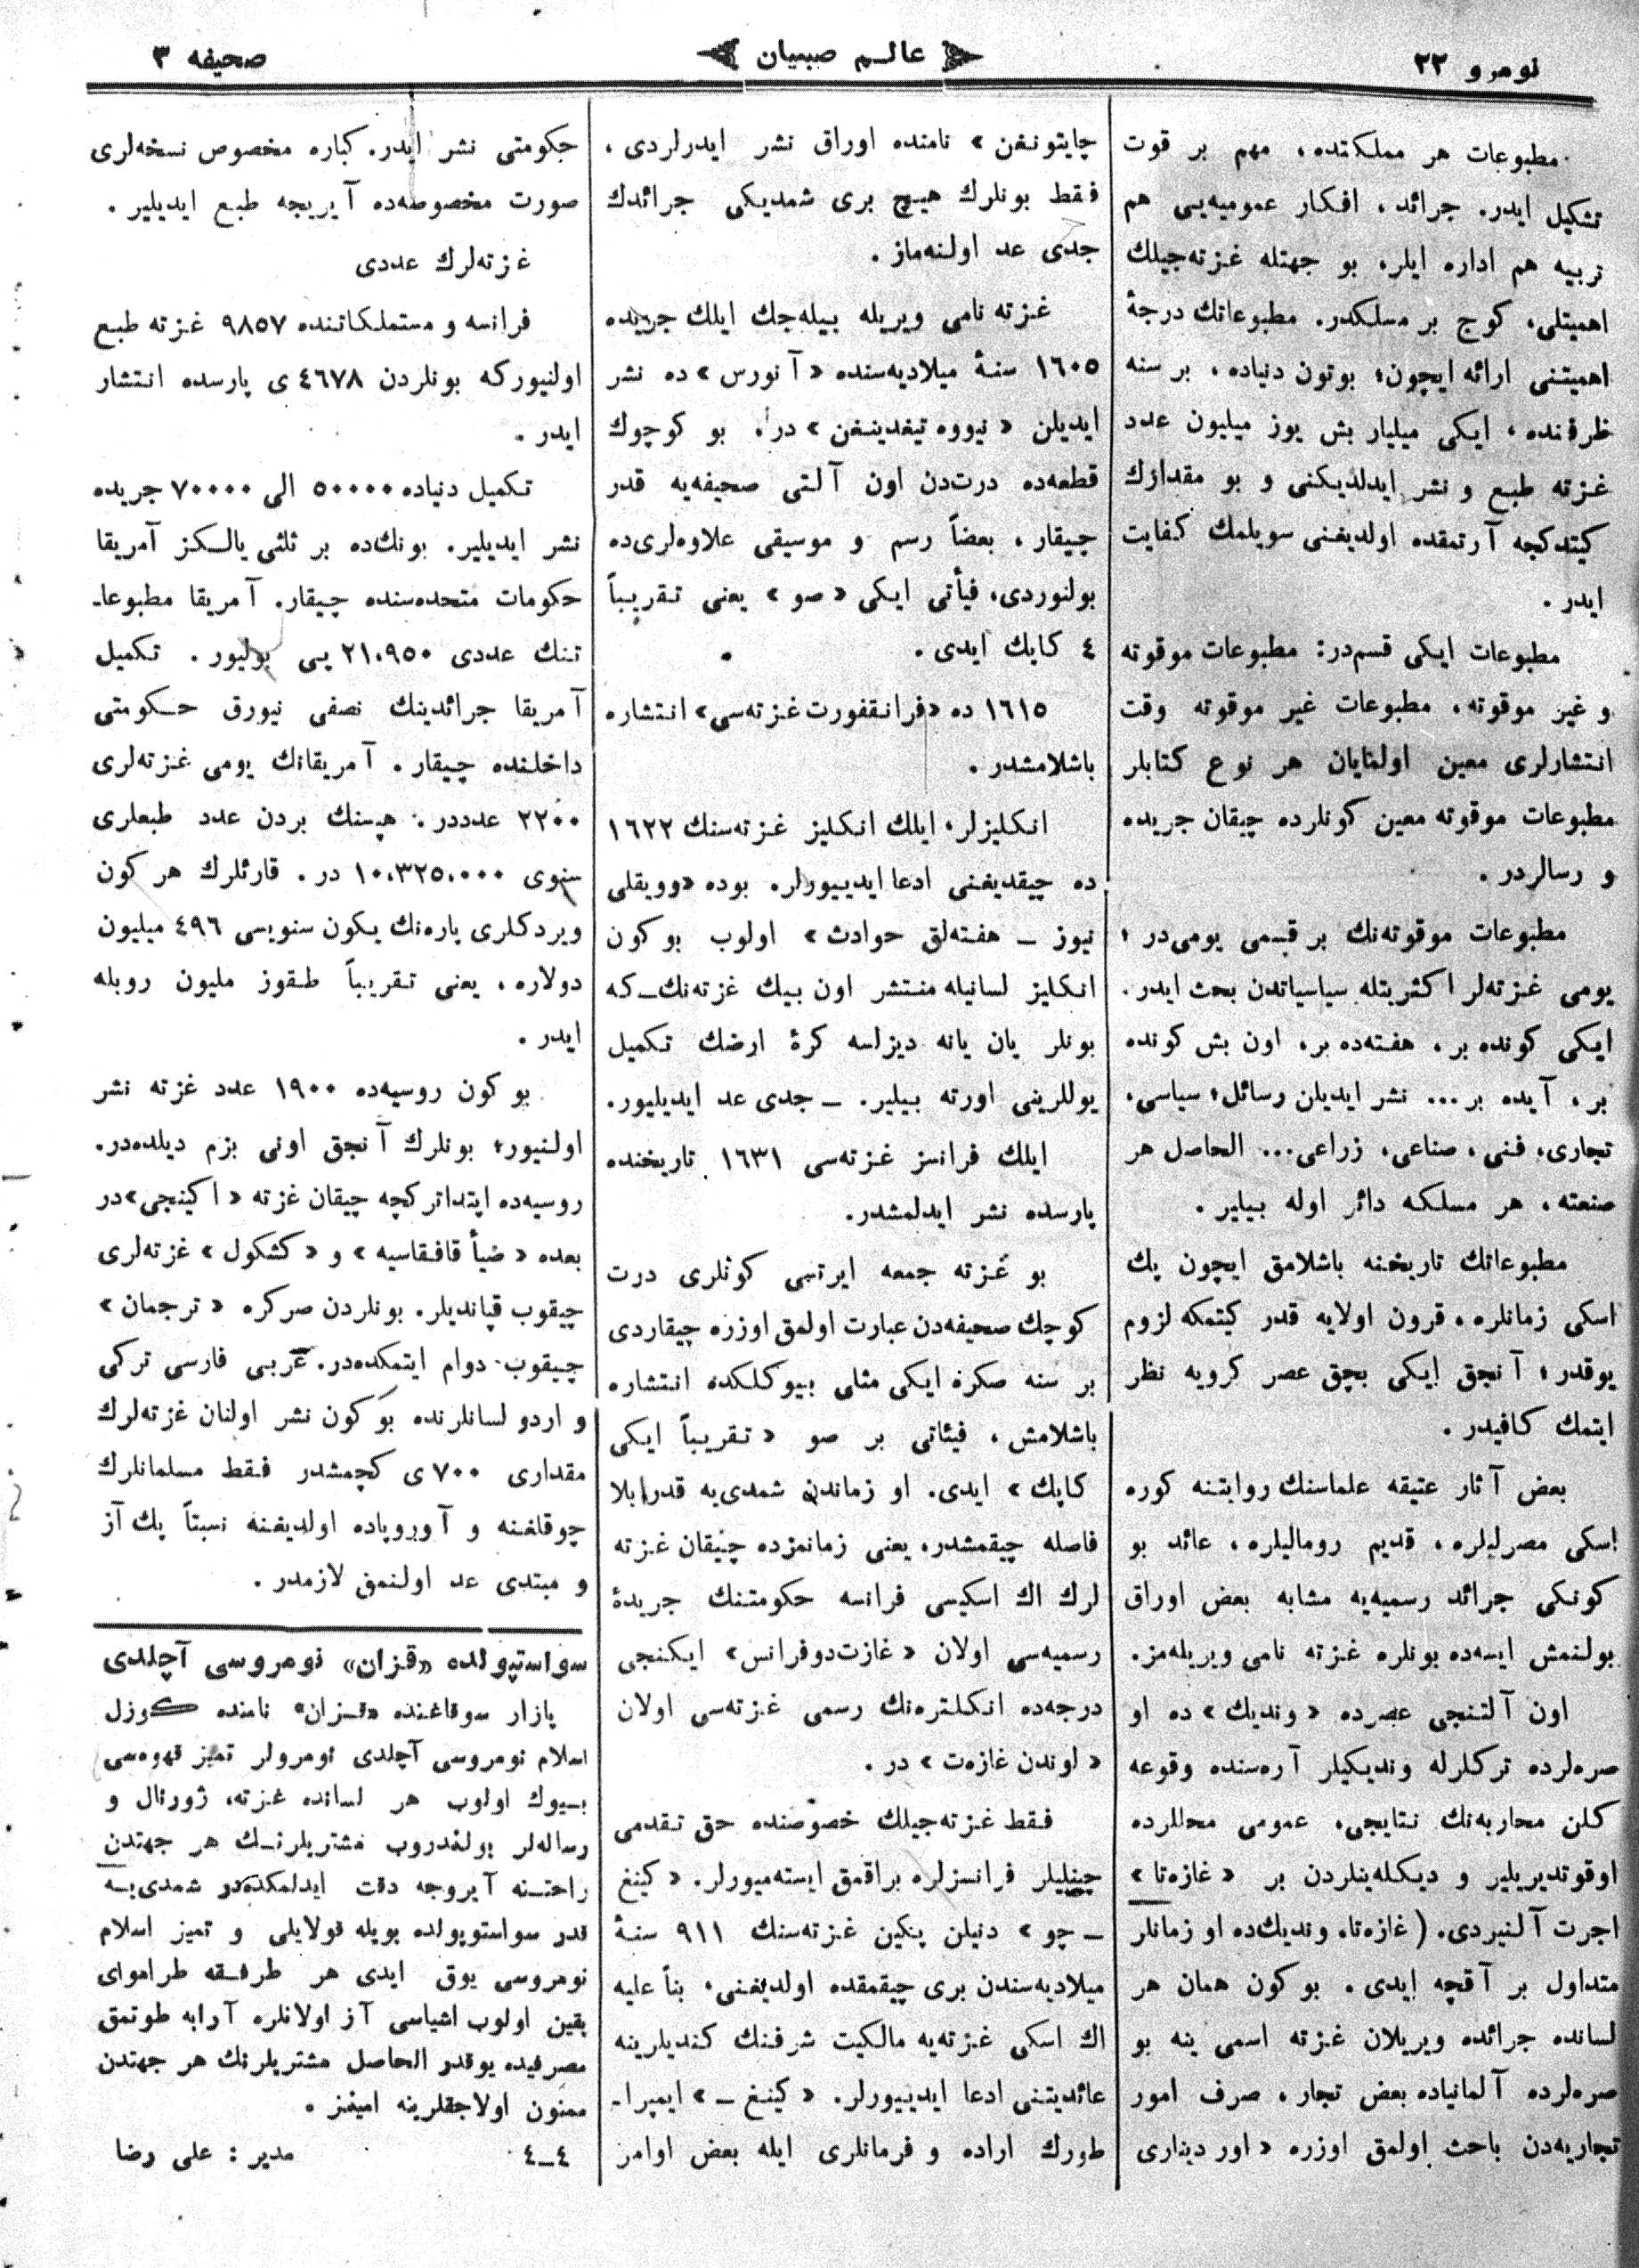 نومرو ٢٢
عالم صبيان
صحيفه ٣
مطبوعات هر مملكتده، مهم بر قوت
تشكيل ايدر. جرائد، افكار عموميه‌يى هم
تربيه هم اداره ايلر، بو جهتله غزته‌جيلك
اهميتلى، كوج بر مسلكدر. مطبوعاتك درجهٔ
اهميتنى ارائه ايچون؛ بوتون دنياده، بر سنه
ظرفنده، ايكى ميليار بش يوز ميليون عدد
غزته طبع و نشر ايدلديكنى و بو مقدارك
كيتدكجه آرتمقده اولديغنى سويلمك كفايت
ايدر.
مطبوعات ايكى قسم‌در: مطبوعات موقوته
و غير موقوته، مطبوعات غير موقوته وقت
انتشارلرى معين اولمايان هر نوع كتابلر
مطبوعات موقوته معين كونلرده چيقان جريده
و رسالردر.
مطبوعات موقوته‌نك بر قسمى يومى‌در؛
يومى غزته‌لر اكثريتله سياسياتدن بحث ايدر.
ايكى كونده بر، هفته‌ده بر، اون بش كونده
بر، آيده بر... نشر ايديلن رسائل؛ سياسى،
تجارى، فنى، صناعى، زراعى... الحاصل هر
صنعته، هر مسلكه دائر اوله بيلير.
مطبوعاتك تاريخنه باشلامق ايچون پك
اسكى زمانلره، قرون اولايه قدر كيتمكه لزوم
يوقدر؛ آنجق ايكى بچق عصر كرويه نظر
ايتمك كافيدر.
بعض آثار عتيقه علماسنك روايتنه كوره
اسكى مصرليلره، قديم روماليلره، عائد بو
كونكى جرائد رسميه‌يه مشابه بعض اوراق
بولنمش ايسه‌ده بونلره غزته نامى ويريله‌مز.
اون آلتنجى عصرده «ونديك» ده او
صره‌لرده تركلرله ونديكيلر آره‌سنده وقوعه
كلن محاربه‌نك نتايجى، عمومى محللرده
اوقوتديريلير و ديكله‌ينلردن بر «غازه‌تا»
اجرت آلنيردى. (غازه‌تا، ونديك‌ده او زمانلر
متداول بر آقچه ايدى. بو كون همان هر
لسانده جرائده ويريلان غزته اسمى ينه بو
صره‌لرده آلمانياده بعض تجار، صرف امور
تجاريه‌دن باحث اولمق اوزره «اور دينارى
چايتونغن» نامنده اوراق نشر ايدرلردى،
فقط بونلرك هيچ برى شمديكى جرائدك
جدى عد اولنه‌ماز.
غزته نامى ويريله بيله‌جك ايلك جريده
١٦٠٥ سنهٔ ميلاديه‌سنده «آنورس» ده نشر
ايديلن «نيووه تيغدينغن» در، بو كوچوك
قطعه‌ده درت‌دن اون آلتى صحيفه‌يه قدر
چيقار، بعضاً رسم و موسيقى علاوه‌لرى‌ده
بولنوردى، فيأتى ايكى «صو» يعنى تقريباً
٤ كاپك ايدى.
١٦١٥ ده «فرانقفورت غزته‌سى» انتشاره
باشلامشدر.
انكليزلر، ايلك انكليز غزته‌سنك ١٦٢٢
ده چيقديغنى ادعا ايدييورلر. بوده «وويقلى
نيوز ـ هفته‌لق حوادث» اولوب بو كون
انكليز لسانيله منتشر اون بيك غزته‌نك ـ كه
بونلر يان يانه ديزلسه كرهٔ ارضك تكميل
يوللرينى اورته بيلير. ـ جدى عد ايديليور.
ايلك فرانسز غزته‌سى ١٦٣١ تاريخنده
پارسده نشر ايدلمشدر.
بو غزته جمعه ايرتسى كونلرى درت
كوچك صحيفه‌دن عبارت اولمق اوزره چيقاردى
بر سنه صكره ايكى مثلى بيوكلكده انتشاره
باشلامش، فيئاتى بر صو «تقريباً ايكى
كاپك» ايدى. او زماندن شمدى‌يه قدر بلا
فاصله چيقمشدر، يعنى زمانمزده چيقان غزته
لرك اك اسكيسى فرانسه حكومتنك جريدهٔ
رسميه‌سى اولان «غازت دو فرانس» ايكنجى
درجه‌ده انكلتره‌نك رسمى غزته‌سى اولان
«لوندن غازه‌ت» در.
فقط غزته‌جيلك خصوصنده حق تقدمى
چينليلر فرانسزلره براقمق ايسته‌ميورلر. «كينغ
ـ چو» دنيلن پكين غزته‌سنك ٩١١ سنهٔ
ميلاديه‌سندن برى چيقمقده اولديغنى، بنأ عليه
اك اسكى غزته‌يه مالكيت شرفنك كنديلرينه
عائديتنى ادعا ايدييورلر. «كينغ ـ» ايمپرا ـ
طورك اراده و فرمانلرى ايله بعض اوامر
حكومتى نشر ايدر. كباره مخصوص نسخه‌لرى
صورت مخصوصه‌ده آيريجه طبع ايديلير.
غزته‌لرك عددى
فرانسه و مستملكاتنده ٩٨٥٧ غزته طبع
اولنيوركه بونلردن ٤٦٧٨ ى پارسده انتشار
ايدر.
تكميل دنياده ٥٠٠٠٠ الى ٧٠٠٠٠ جريده
نشر ايديلير. بونك‌ده بر ثلثى يالكز آمريقا
حكومات متحده‌سنده چيقار. آمريقا مطبوعا ـ
تنك عددى ٢١،٩٥٠ يى بوليور. تكميل
آمريقا جرائدينك نصفى نيورق حكومتى
داخلنده چيقار. آمريقانك يومى غزته‌لرى
٢٢٠٠ عدددر. هپسنك بردن عدد طبعلرى
سنوى ١٠،٣٢٥،٠٠٠ در. قارئلرك هر كون
ويردكلرى پاره‌نك يكون سنويسى ٤٩٦ ميليون
دولاره، يعنى تقريباً طقوز مليون روبله
ايدر.
بو كون روسيه‌ده ١٩٠٠ عدد غزته نشر
اولنيور؛ بونلرك آنجق اونى بزم ديلده‌در.
روسيه‌ده ابتدا تركچه چيقان غزته «اكينجى» در
بعده «ضيأ قافقاسيه» و «كشكول» غزته‌لرى
چيقوب قپانديلر. بونلردن صركره «ترجمان»
چيقوب دوام ايتمكده‌در. عربى فارسى تركى
و اردو لسانلرنده بو كون نشر اولنان غزته‌لرك
مقدارى ٧٠٠ ى كچمشدر فقط مسلمانلرك
چوقلغنه و آوروپاده اولديغنه نسبتاً پك آز
و مبتدى عد اولنمق لازمدر.
سواستپولده «قزان» نومروسى آچلدى
پازار سوقاغنده «قزان» نامنده كوزل
اسلام نومروسى آچلدى نومرولر تميز قهوه‌سى
بيوك اولوب هر لسانده غزته، ژورنال و
رساله‌لر بولندروب مشتريلرنك هر جهتدن
راحتنه آيروجه دقت ايدلمكده‌در شمدى‌يه
قدر سواستوپولده بويله قولايلى و تميز اسلام
نومروسى يوق ايدى هر طرفه طراموای
يقين اولوب اشياسى آز اولانلره آرابه طوتمق
مصرفيده يوقدر الحاصل مشتريلرنك هر جهتدن
ممنون اولاجقلرينه امينز.
٤ـ٤ مدير: على رضا